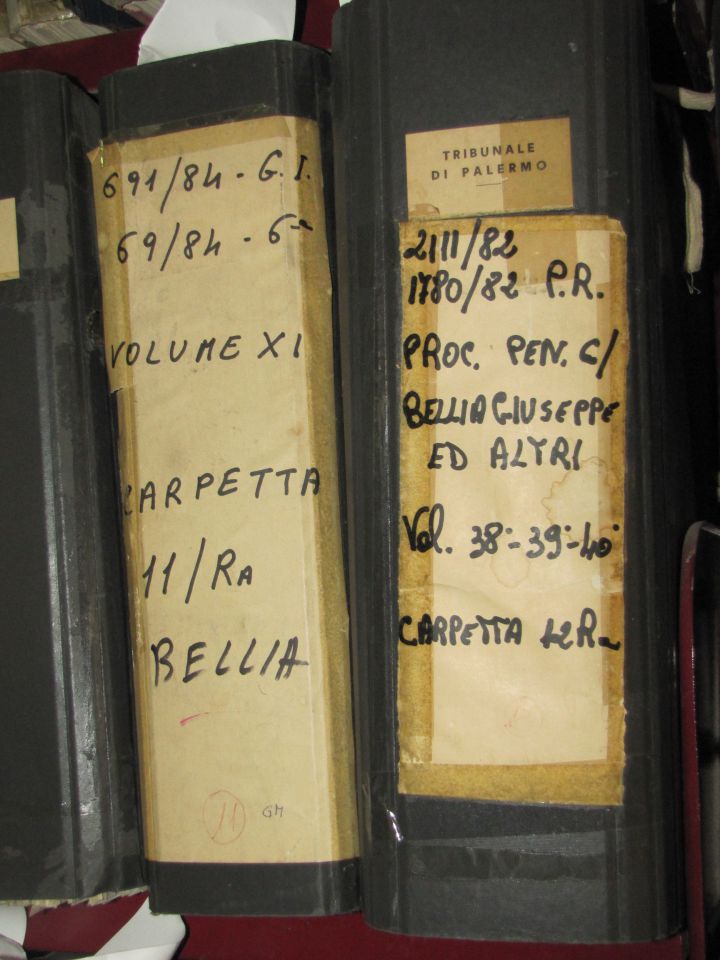 691/84 - G.I.
69/84 - 6ª
VOLUME XI
CARPETTA
11/RA
BELLIA
11
GM
TRIBUNALE
DI PALERMO
2111/82
1780/82 P.R.
PROC. PEN. C/
BELLIA GIUSEPPE
ED ALTRI
Vol. 38°-39°-40°
CARPETTA 12Ra